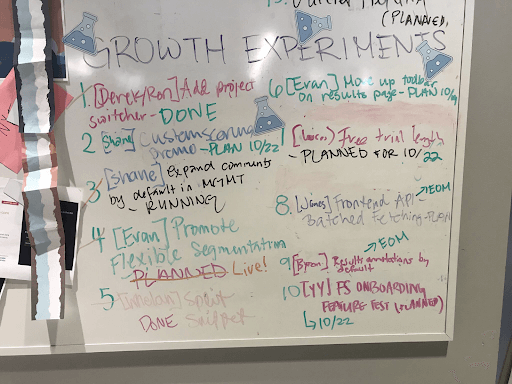 (PLANNED,
GROWTH EXPERIMENTS
1. [Derek/Ron] Add project
switcher - DONE
2 [Shane] Custom scoring
promo - PLAN 10/22
3 [Shane] Expand comments
by default in MGMT
- RUNNING
4 [Evan] Promote
Flexible Segmentation
PLANNED Live!
5 Split
DONE Snippet
6 [Evan] Move up toolbar
on results page - PLAN 10/
Free trial length
- PLANNED FOR 10/22
8. [James] Frontend API -
Batched Fetching - PLAN
→ EOM
→ EOM
9 [Byron] Results annotations by
default
10 [YY] FS ONBOARDING
FEATURE TEST (PLANNED)
↳ 10/22